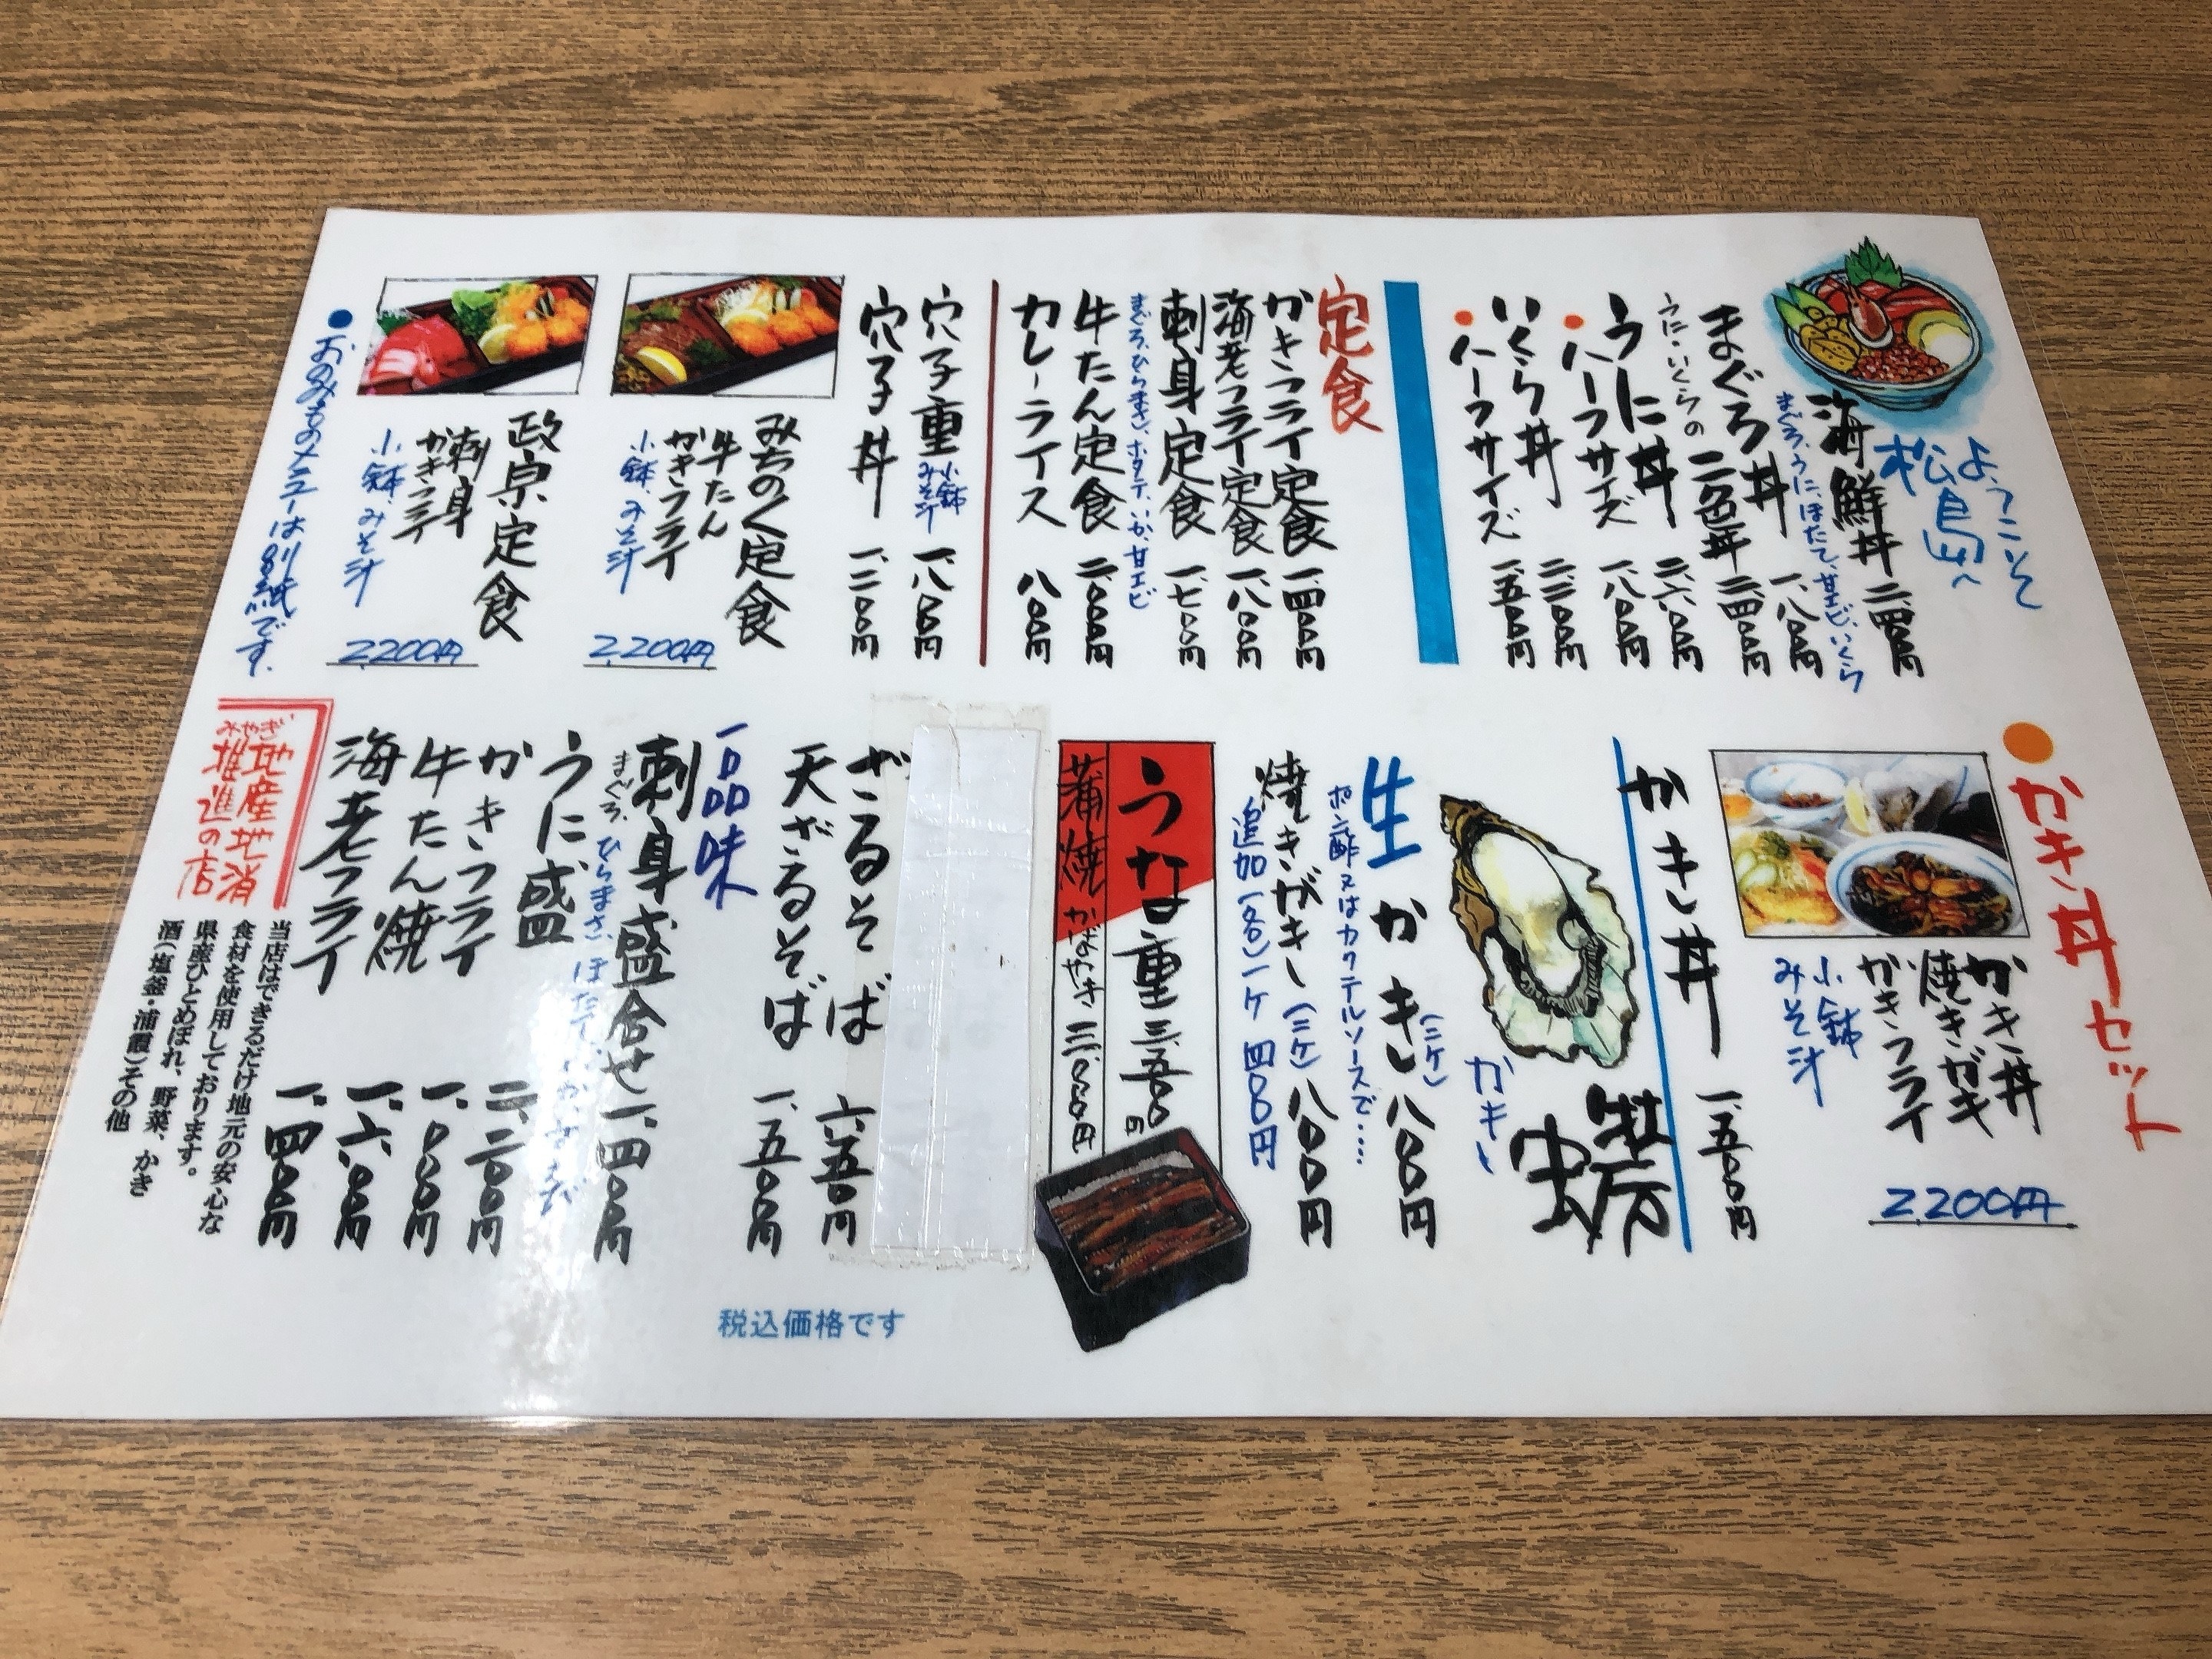 ようこそ
松島へ
海鮮丼 二、四〇〇円
まぐろ、うに、ほたて、甘エビ、いくら
まぐろ丼 一、八〇〇円
うに・いくらの二色丼 二、四〇〇円
うに丼 二、六〇〇円
●ハーフサイズ 一、八〇〇円
いくら丼 二、二〇〇円
●ハーフサイズ 一、五〇〇円
定食
かきフライ定食 一、四〇〇円
海老フライ定食 一、八〇〇円
刺身定食 一、七〇〇円
まぐろ、ひらまさ、ホタテ、いか、甘エビ
牛たん定食 二、〇〇〇円
カレーライス 八〇〇円
穴子重 小鉢 みそ汁 一、八〇〇円
穴子丼 一、二〇〇円
みちのく定食
牛たん
かきフライ
小鉢、みそ汁
2,200円
政宗定食
刺身
かきフライ
小鉢、みそ汁
2,200円
●おのみものメニューは別紙です。
●かき丼セット
かき丼
焼きガキ
かきフライ
小鉢
みそ汁
2,200円
かき丼 一、五〇〇円
牡蛎
かき
生かき(二ケ) 八〇〇円
ポン酢又はカクテルソースで....
焼きがき(二ケ) 八〇〇円
追加(一名)一ケ 四〇〇円
うな重 三、五〇〇円
蒲焼 かばやき 三、〇〇〇円
ざるそば 六五〇円
天ざるそば 一、五〇〇円
一品味
刺身盛合せ 一、四〇〇円
まぐろ、ひらまさ、ほたて、いか、甘えび
うに盛 二、二〇〇円
かきフライ 一、〇〇〇円
牛たん焼 一、六〇〇円
海老フライ 一、四〇〇円
みやぎ
地産地消
推進の店
当店はできるだけ地元の安心な
食材を使用しております。
県産ひとめぼれ、野菜、かき
酒(塩釜・浦霞)その他
税込価格です